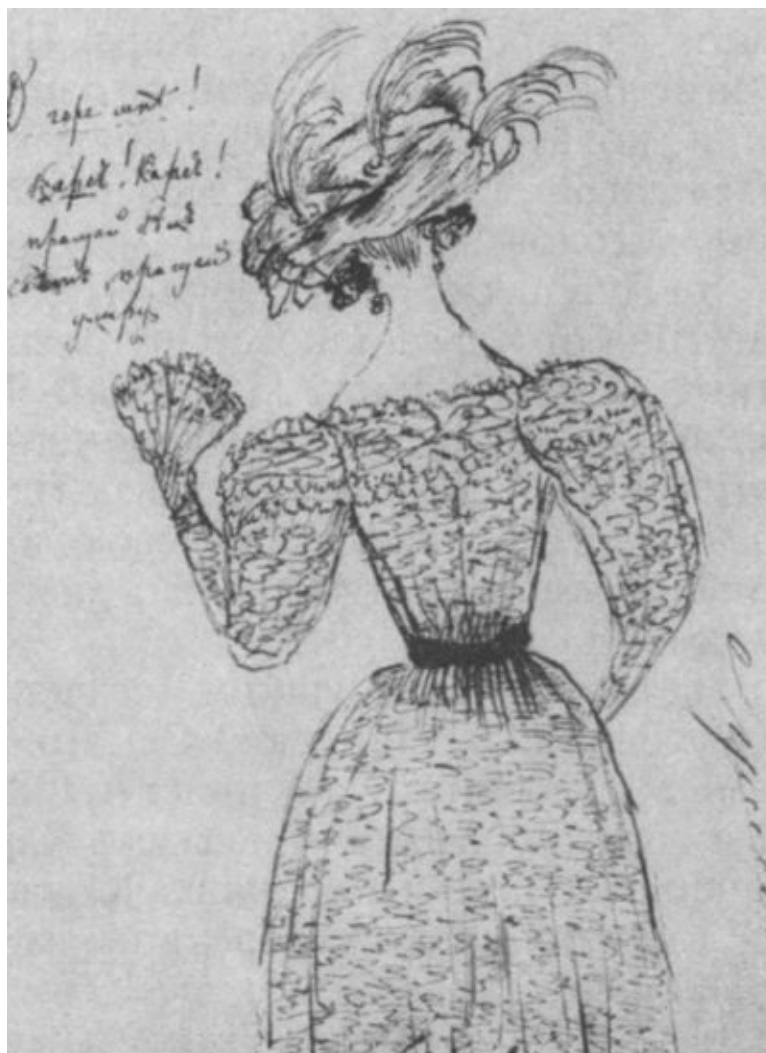 О горе мнѣ!
Карсъ! Карсъ!
прощай бѣлъ
свѣтъ, прощай
умру